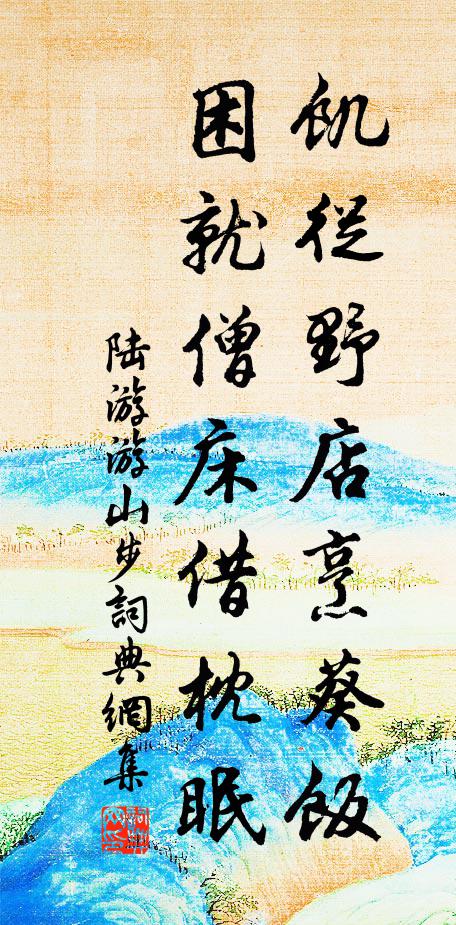 飢從野店烹葵飯
困就僧床借枕眠
陆游游山步詞典網集